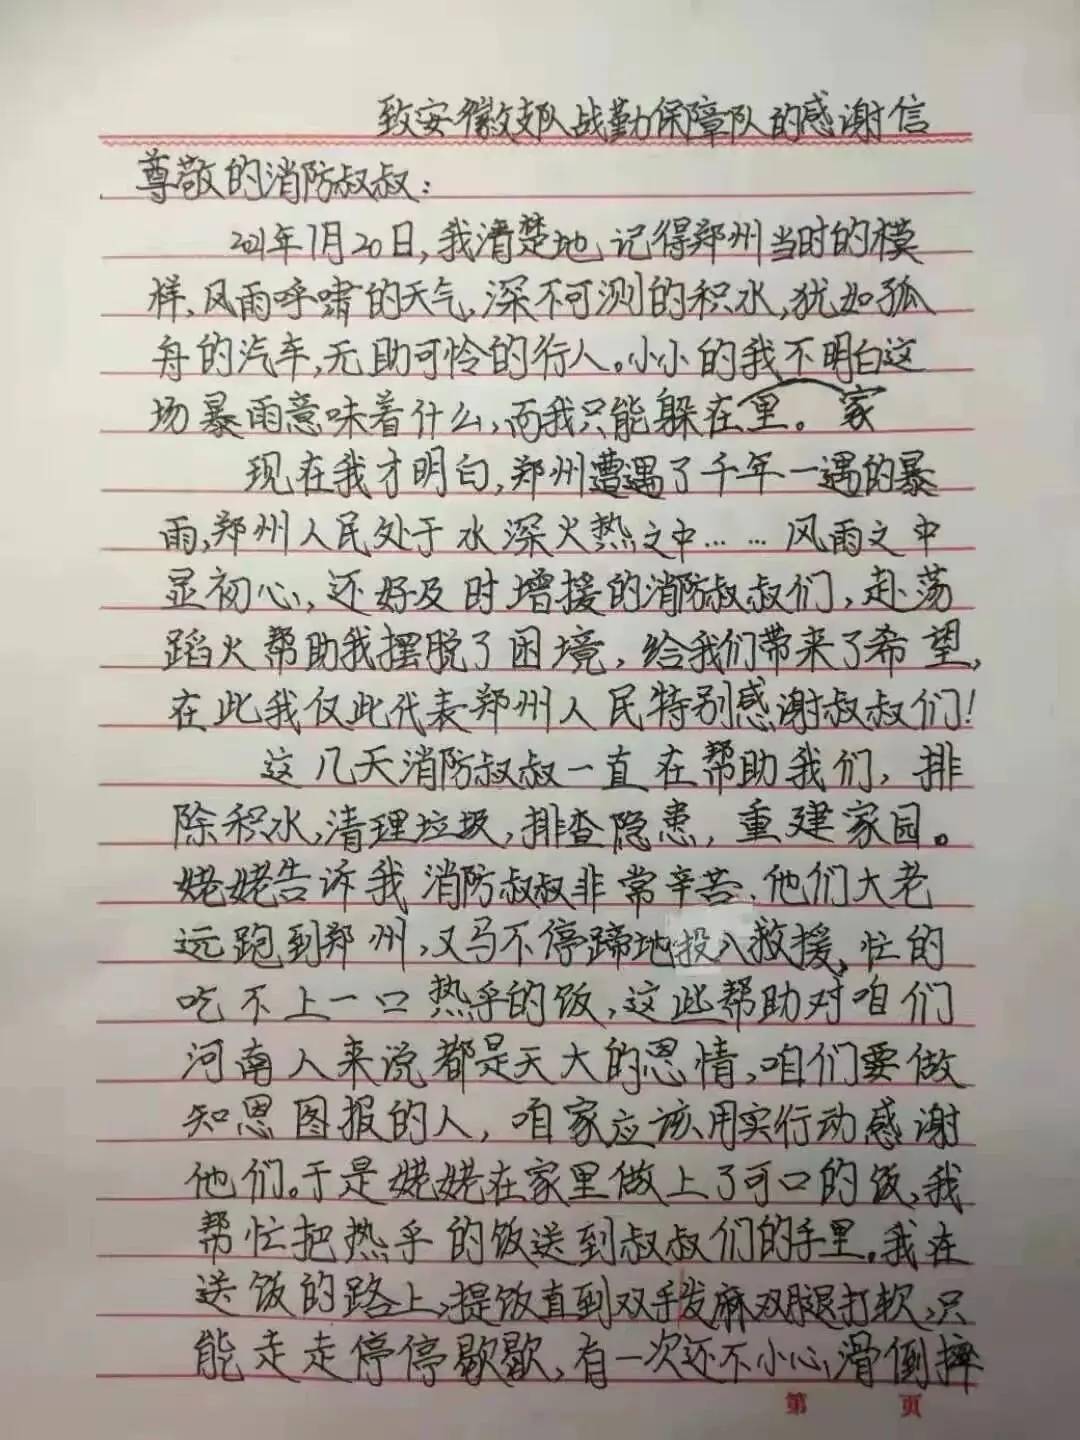 致安徽支队战勤保障队的感谢信
尊敬的消防叔叔：
2021年7月20日，我清楚地记得郑州当时的模
样，风雨呼啸的天气，深不可测的积水，犹如孤
舟的汽车，无助可怜的行人。小小的我不明白这
场暴雨意味着什么，而我只能躲在里。家
现在我才明白，郑州遭遇了千年一遇的暴
雨，郑州人民处于水深火热之中……风雨之中
显初心，还好及时增援的消防叔叔们，赴荡
蹈火帮助我摆脱了困境，给我们带来了希望，
在此我仅此代表郑州人民特别感谢叔叔们！
这几天消防叔叔一直在帮助我们，排
除积水，清理垃圾，排查隐患，重建家园。
姥姥告诉我消防叔叔非常辛苦，他们大老
远跑到郑州，又马不停蹄地投入救援，忙的
吃不上一口热乎的饭，这些帮助对咱们
河南人来说都是天大的恩情，咱们要做
知恩图报的人，咱家应该用实行动感谢
他们。于是姥姥在家里做上了可口的饭，我
帮忙把热乎的饭送到叔叔们的手里。我在
送饭的路上，提饭直到双手发麻双腿打软，只
能走走停停歇歇，有一次还不小心滑倒摔
第 页